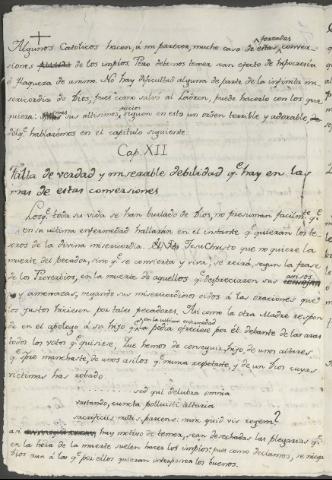 Algunos Catolicos hacen, á mi parecer, mucho caso de estas forzadas conver-
siones de los impios. Pero debemos temer sean efecto de hipocresia
ó flaqueza de animo. No hay dificultad alguna de parte de la infinita mi-
sericordia de Dios, pues como salvó al Ladron, puede hacerlo con los que
quiera: sus altisimos juicios siguen en esto un orden terrible y adorable, de
del qe. hablarémos en el capítulo siguiente.
Cap. XII
Falta de verdad y miserable debilidad qe. hay en las
mas de estas conversiones
Los qe. toda su vida se han burlado de Dios, no presuman facilmte. qe.
en su ultima enfermedad hallarán en el instante qe. quieran los te-
soros de la divina misericordia. Jesu Christo que no quiere la
muerte del pecador, sino qe. se convierta y viva, se reirá, segun la frase
de los Proverbios, en la muerte de aquellos qe. despreciaren sus avisos
y amenazas, negando sus misericordiosos oidos á las oraciones que
los justos hicieren por tales pecadores. Asi como la otra Madre respon-
de en el apologo á su hijo qe. la pedia ofreciese por él delante de las aras
todos los votos qe. quisiere, que hemos de conseguir, hijo, de unos altares
qe. tu manchaste, de unos asilos qe. nunca respetaste, y de un Dios cuyas
victimas has robado
sed qui delubra omnia
vastando, cuncta polluisti altaria
sacrificiis nullis parcens: nunc quid vis rogem?
asi hay motivo de temer, sean desechadas las plegarias qe.
en la hora de la muerte suelen hacer los impios: pues como deciamos, se niega
Dios aun á las qe. por ellos quieran interponer los buenos.